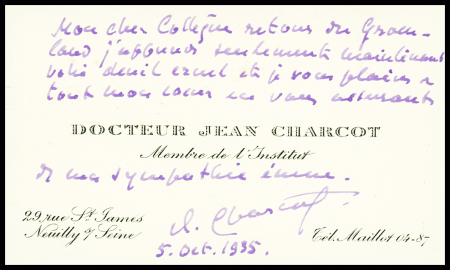 Mon cher Collègue retour du Groen-
land j'apprends seulement maintenant
votre deuil cruel et je vous plains de
tout mon cœur en vous assurant
DOCTEUR JEAN CHARCOT
Membre de l'Institut
de ma sympathie émue.
J. Charcot
29, rue St. James
Neuilly s/ Seine
Tél. Maillot 04-87
5. Oct. 1935.